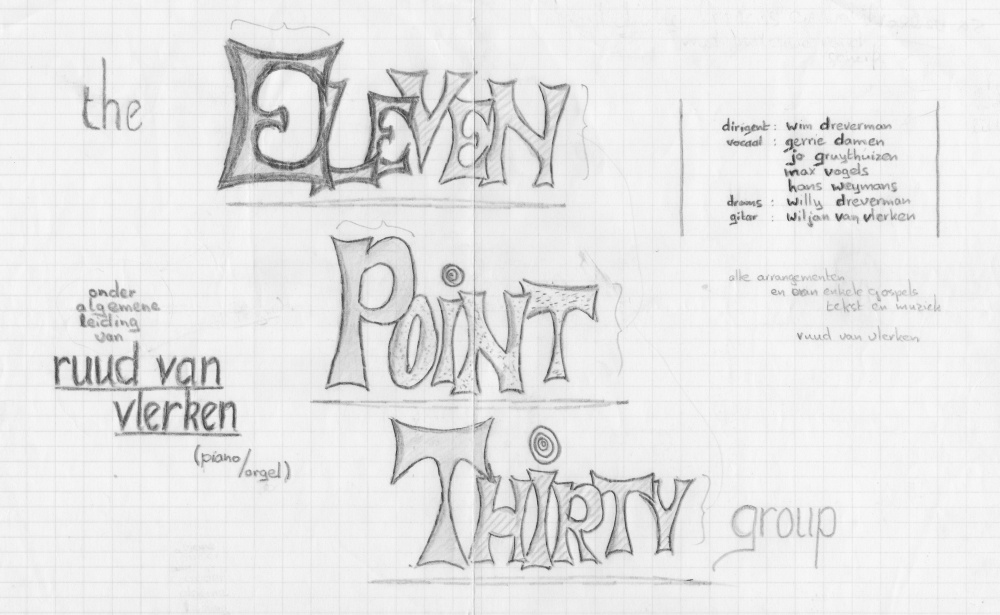 the ELEVEN
POINT
THIRTY group
onder
algemene
leiding
van
ruud van
vlerken
(piano/orgel)
dirigent : wim dreverman
vocaal : gerrie damen
jo gruythuizen
max vogels
hans weymans
drums : willy dreverman
gitar : wiljan van vlerken
alle arrangementen
en van enkele gospels
tekst en muziek
ruud van vlerken